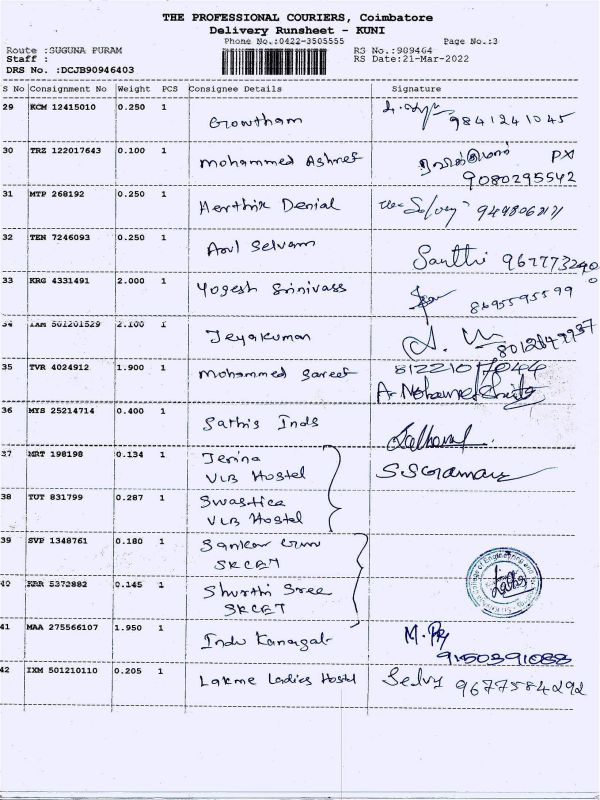 THE PROFESSIONAL COURIERS, Coimbatore
Delivery Runsheet - KUNI
Phone No.:0422-3505555
Page No.:3
Route :SUGUNA PURAM
RS No.:909464
Staff :
RS Date:21-Mar-2022
DRS No. :DCJB90946403
S No Consignment No Weight PCS Consignee Details Signature
29 KCM 12415010 0.250 1
Growtham 9841241045
30 TRZ 122017643 0.100 1
Mohammed Ashref PX
9080295542
31 MTP 268192 0.250 1
Herthik Denial
32 TEN 7246093 0.250 1
Arul Selvam Santhi 9677732400
33 KRG 4331491 2.000 1
Yogesh Srinivass 8695595599
34 501201529 2.100 1
Jeyakumar
35 TVR 4024912 1.900 1 8122107044
Mohammed Sareef
36 MYS 25214714 0.400 1
Sathis Inds
37 MRT 198198 0.134 1 Jerina
VLB Hostel
38 TUT 831799 0.287 1 Swastica
VLB Hostel
39 SVP 1348761 0.180 1 Sankar
SKCET
40 KRR 5372882 0.145 1
Shurthi Sree
SKCET
41 MAA 275566107 1.950 1
Indu M.
9150391088
42 IXM 501210110 0.205 1
Lakme Ladies Hostel Selvy 9677584292